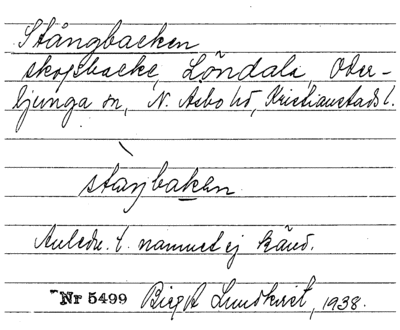 Stångbacken
skogsbacke, Löndala, Oder-
ljunga sn, N. Åsbo hd, Kristianstads l.
staŋbakən
Anledn. t. namnet ej känd.
Nr 5499 Birgit Lundkvist, 1938.